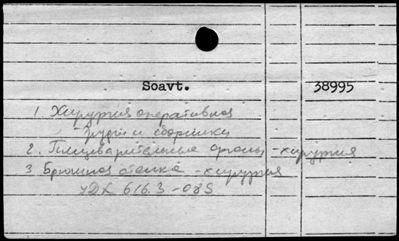 Soavt. 38995
1. Хирургия оперативная
- Труды и сборники
2. Пищеварительные органы - хирургия
3. Брюшная стенка - хирургия
УДК 616.3-085